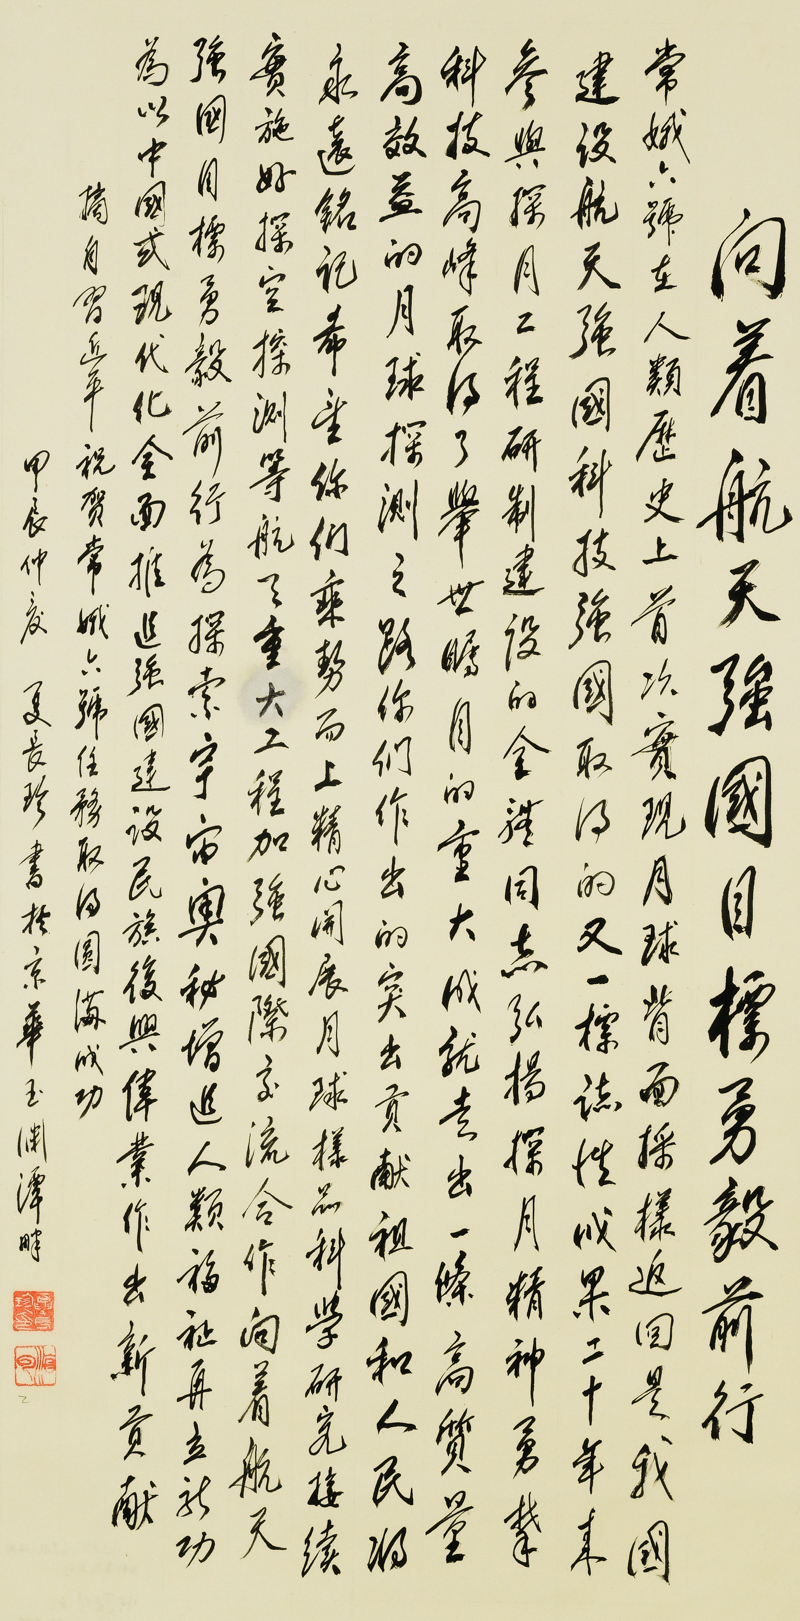 向着航天強國目標勇毅前行
常娥六號在人類歷史上首次實現月球背面採樣返回是我國
建設航天強國科技強國取得的又一標誌性成果二十年來
參與探月工程研制建設的全體同志弘揚探月精神勇攀
科技高峰取得了舉世矚目的重大成就走出一條高質量
高效益的月球探測之路你們作出的突出貢獻祖國和人民將
永遠銘記希望你們乘勢而上精心開展月球樣品科學研究接續
實施好探空探測等航天重大工程加強國際交流合作向着航天
強國目標勇毅前行為探索宇宙奧秘增進人類福祉再立新功
為以中國式現代化全面推進強國建設民族復興偉業作出新貢獻
摘自習近平祝贺常娥六號任務取得圆滿成功
甲辰仲夏 夏長珍書於京華玉渊潭畔